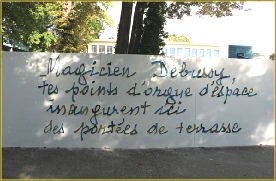 Magicien Debussy,
tes points d'orgue d'espace
inaugurent ici
des portées de terrasse